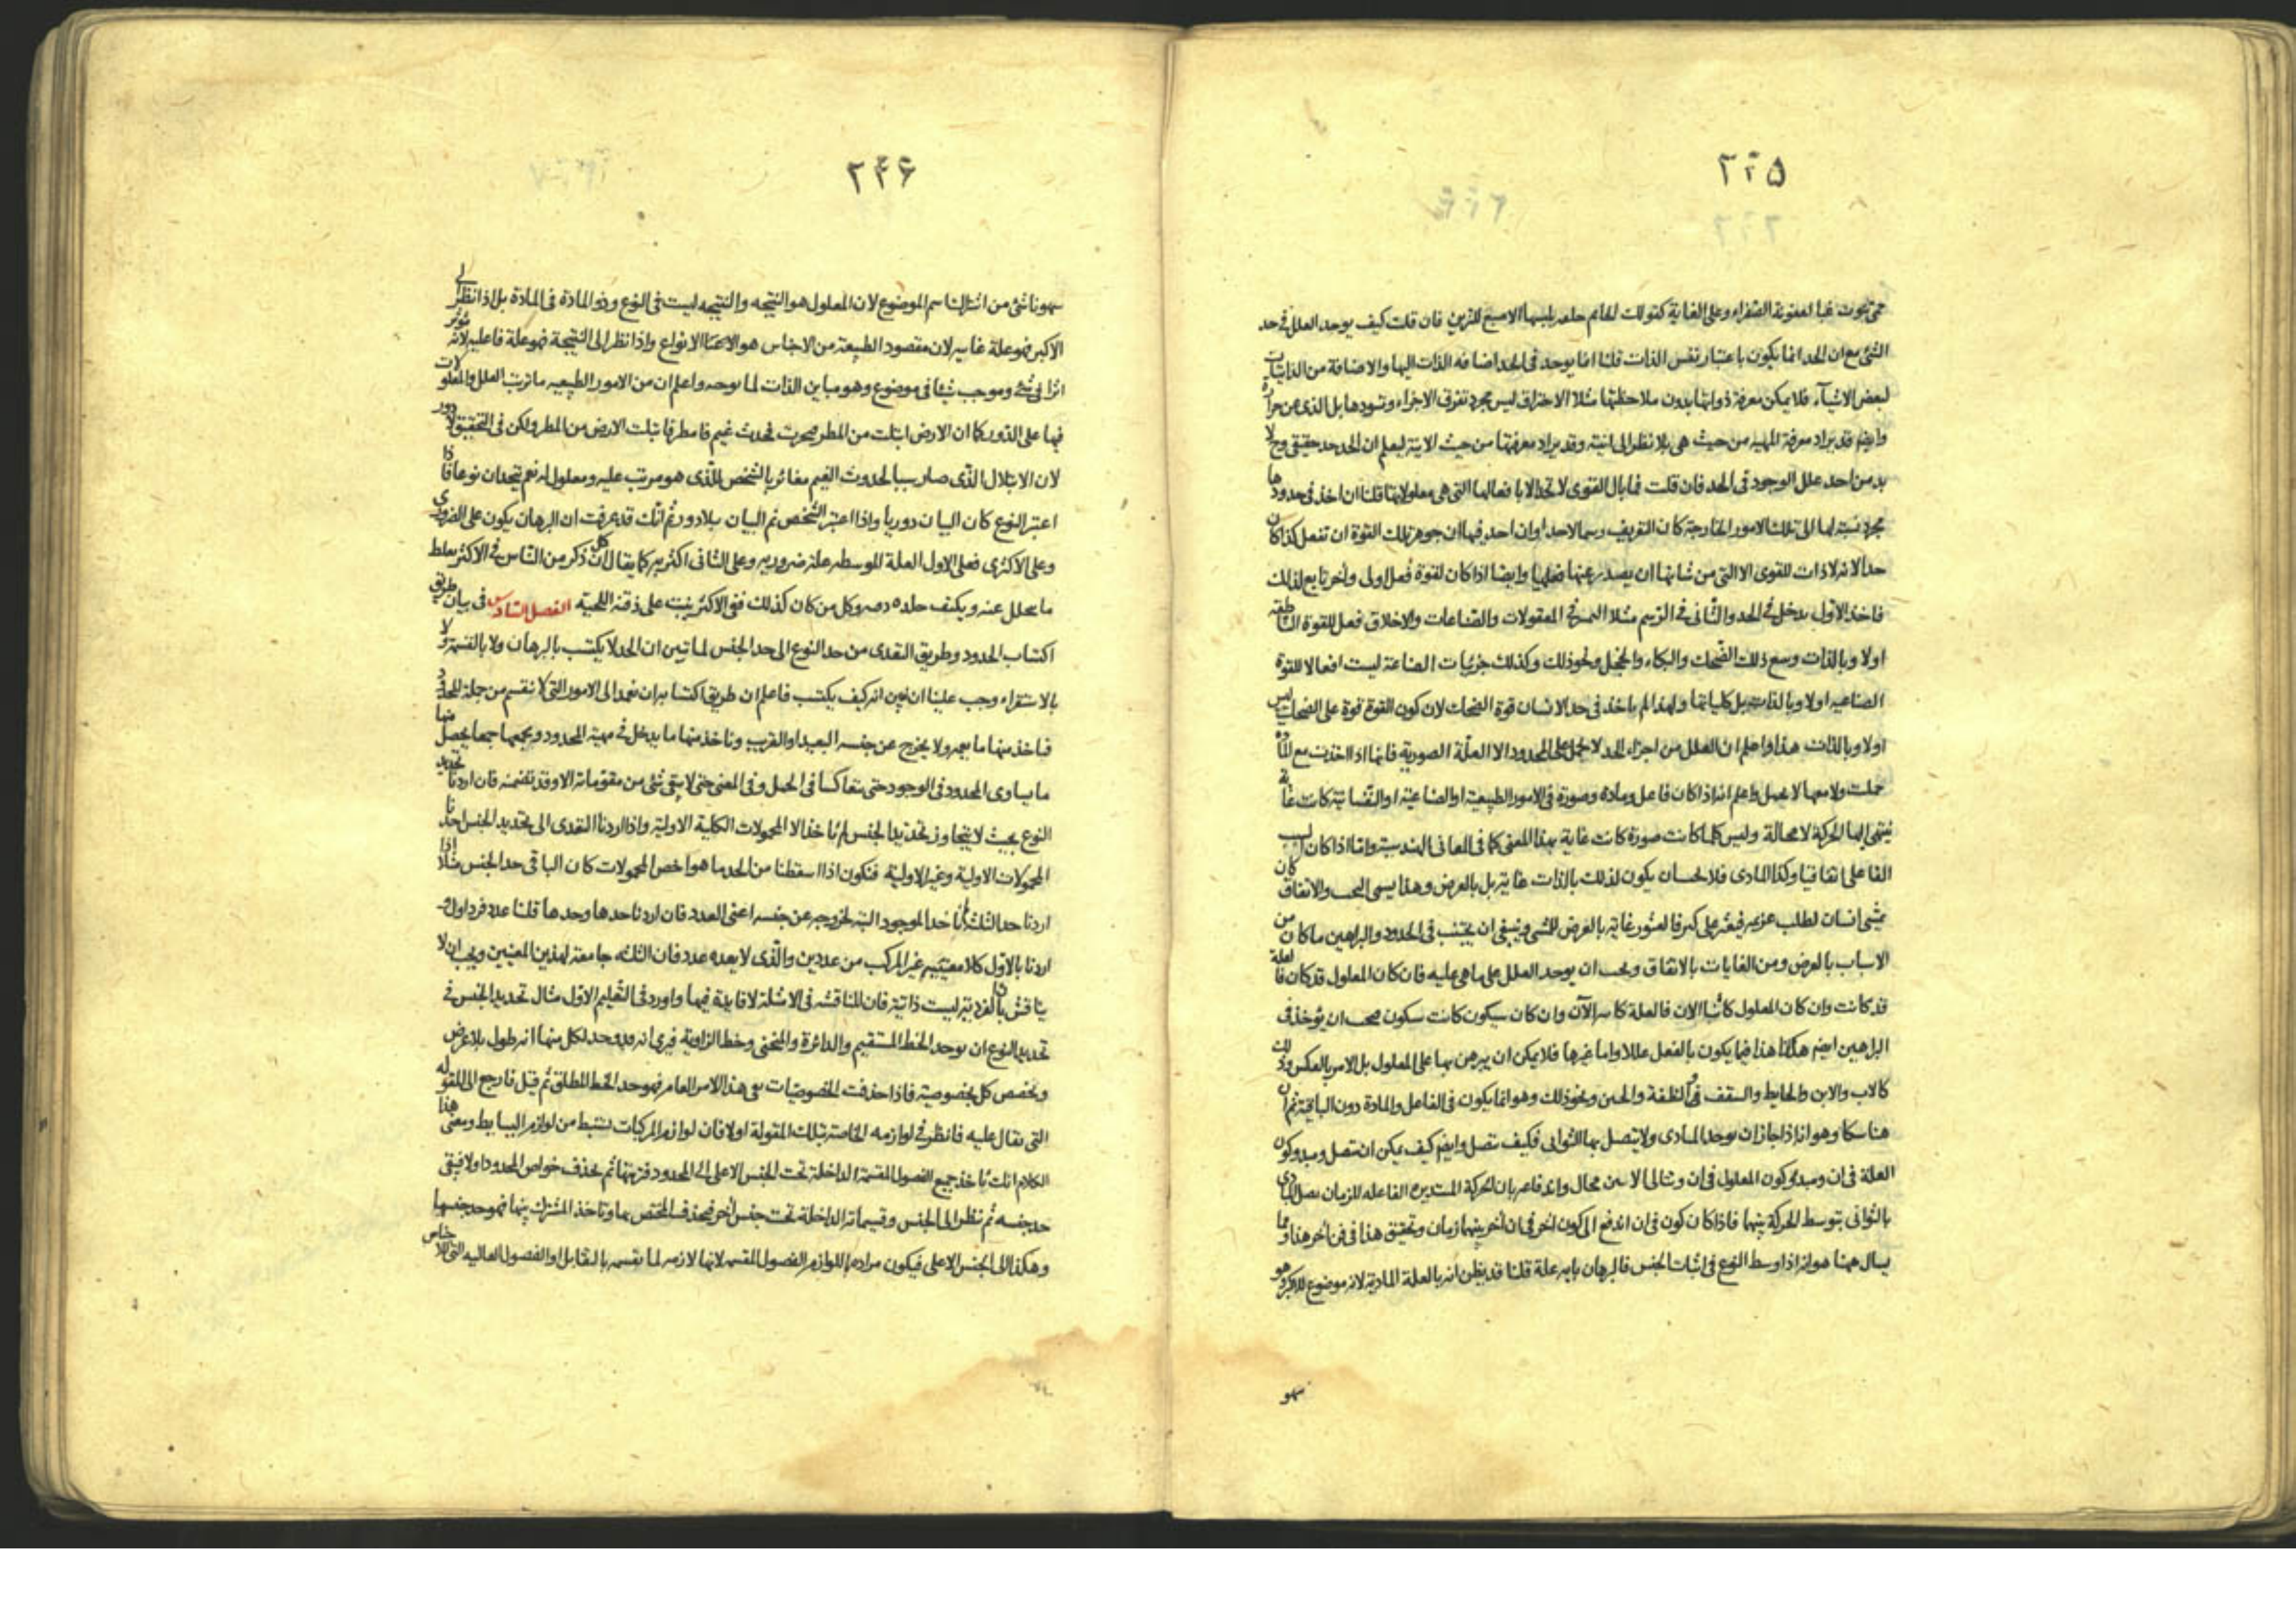 ٢٢٥
الشئ مع ان الحد انما يكون باعتبار نفس الذات قلنا انما يوجد فى الحد اضافة الذات اليها والاضافة من الذاتيات
لبعض الاشيآء فلا يمكن معرفة ذواتها بدون ملاحظتها مثلا الاحتراق ليس مجرد تفرق الاجزاء وتسودها بل الذى عن حرارة
وايضم قد يراد معرفة المهيه من حيث هى بلا نظر الى انيته وقد يراد معرفتها من حيث الانية ليعلم ان الحد حد حقيقى وح لا
بد من احد علل الوجود فى الحد فان قلت فما بال القوى لا تحد الا بافعالها التى هى معلولاتها قلنا ان اخذ فى حدودها
مجرد نسبته لها الى تلك الامور الخارجة كان التعريف رسما لاحدا وان احد فيها ان جوهر تلك القوة ان تفعل كذا كان
حدا لانه لا ذات للقوى الا التى من شانها ان يصدر عنها فعلها وايضا اذا كان لقوة فعل اولى وآخر تابع لذلك
فاخذ الاول يدخل فى الحد والثانى فى الرسم مثلا التميز فى المعقولات والصناعات والاخلاق فعل للقوة الناطقه
اولا وبالذات ومع ذلك الضحك والبكاء والخجل ونحو ذلك وكذلك جزئيات الصناعة ليست افعالا للقوة
الصناعيه اولا وبالذات بل كلياتها ولهذا لم ياخذ فى حد الانسان قوة الضحك لان كون القوة قوة على الضحك ليس
اولا وبالذات هذا واعلم ان العلل من اجزاء الحد لا تحمل على المحدود الا العلة الصورية فانها اذا اخذت مع المادة
حملت ولا معها لا تحمل واعلم انه اذا كان فاعل ومادة وصورة فى الامور الطبيعية او الصناعية او النفسانية كانت غاية
ينتهى اليها الحركة لا محالة وليس كلما كانت صورة كانت غاية بهذا المعنى كما فى المعانى الهندسية واما اذا كان السبب
الفاعلى اتفاقيا وكذا المادى فلا لحسان يكون لذلك بالذات غاية بل بالعرض وهذا يسمى البخت والاتفاق كان
يمشى انسان لطلب غريمه فيعثر على كنز فالعثور غاية بالعرض للمشى وينبغى ان يجتنب فى الحدود والبراهين ما كان من
الاسباب بالعرض ومن الغايات بالاتفاق ويجب ان يوجد العلل على ما هى عليه فان كان المعلول قد كان فالعلة
قد كانت وان كان المعلول كائنا الان فالعلة كائنه الآن وان كان سيكون كانت ستكون
البراهين ايضم هكذا هذا فيما يكون بالفعل عللا واما غيرها فلا يمكن ان يبرهن بها على المعلول بل الامر بالعكس وذلك
كالاب والابن والحايط والسقف ونحو ذلك وهو انما يكون فى الفاعل والمادة دون الباقية ثم ان
العلة فى ان ومبدؤ كون المعلول فى ان وتتالى الانين محال واندفاعه بان الحركة المستديرة الفاعله للزمان
بالثوانى بتوسط الحركة بينها فاذا كان كون فى ان اندفع الى كون آخر فى ان آخر بينهما زمان وتحقيق هذا فى فن آخر هذا ومما
يسال ههنا هو انه اذا وسط النوع فى اثبات الجنس فالبرهان بايه علة قلنا قد يظن انه بالعلة المادية لانه موضوع للاكبر وهو
سهو
٢٢۶
سهو ناشئ من اشتراك اسم الموضوع لان المعلول هو النتيجه والنتيجه ليست فى النوع وذو المادة فى المادة بل اذا نظر الى
الاكبر فهو علة غاييه لان مقصود الطبيعة من الاجناس هو الانواع واذا نظر الى النتيجة فهو علة فاعليه لانه يؤثر
اثرا فى شئ وموجب شيئا فى موضوع وهو مباين الذات لما يوجبه واعلم ان من الامور الطبيعيه ما ترتب العلل والمعلولات
فيها على الدور كما ان الارض ابتلت من المطر فبخرت فحدث غيم فامطر فابتلت الارض من المطر ولكن فى التحقيق لا دور
لان الابتلال الذى صار سببا لحدوث الغيم مغائر بالشخص للذى هو مرتب عليه ومعلول له نعم يتحدان نوعا فاذا
اعتبر النوع كان البيان دوريا واذا اعتبر الشخص تم البيان بلا دور ثم انك قد عرفت ان البرهان يكون على الضرورى
وعلى الاكثرى فعلى الاول العلة الموسطه علة ضروريه وعلى الثانى اكثريه كما يقال ان كل ذكر من الناس فى الاكثر يغلظ
ما يتحلل عنه ويكثف جلده وكل من كان كذلك ففى الاكثر ينبت على ذقنه اللحية الفصل السادس فى بيان طريق
اكتساب الحدود وطريق التعدى من حد النوع الى حد الجنس لما تبين ان الحد لا يكتسب بالبرهان ولا بالقسمة ولا
بالاستقراء وجب علينا ان نبين انه كيف يكتسب فاعلم ان طريق اكتسابه ان نعمد الى الامور التى لا تنقسم من جملة المحدود
فناخذ منها ما يعمه ولا يخرج عن جنسه البعيد او القريب وناخذ منها ما يدخل فى مهية المحدود ونجمعها جمعا يحصل منها
ما يساوى المحدود فى الوجود حتى يتعاكسا فى الحمل وفى المعنى حتى لا يبقى شئ من مقوماته الا وقد تضمنه فان اردنا تحديد
النوع بحيث لا يتجاوز تحديد الجنس لم ناخذ الا المحمولات الكلية الاولية واذا اردنا التعدى الى تحديد الجنس اخذنا
المحمولات الاولية وغير الاولية فنكون اذا اسقطنا من الحد ما هو اخص المحمولات كان الباقى حد الجنس مثلا اذا
اردنا حد الثلثة لم ناخذ الموجود البتة لخروجه عن جنسه اعنى العدد فان اردنا حدها وحدها قلنا عدد فرد اول و
اردنا بالاول كلا معنييه غير المركب من عددين والذى لا يعده عدد فان الثلثه جامعة لهذين المعنيين ويجب ان لا
يناقش بان الفردية ليست ذاتية فان المناقشه فى الامثلة لا فايدة فيها واورد فى التعليم الاول مثال تحديد الجنس فى
تحديد النوع ان يوجد الخط المستقيم والدائرة والمنحنى وخط الزاوية فيرى انه قد وجد لكل منها انه طول بلا عرض
وتخصص كل بخصوصية فاذا حذفت الخصوصيات بقى هذا الامر العام فهو حد الخط المطلق ثم قيل فارجع الى المقوله
التى يقال عليه فانظر فى لوازمه الخاصة بتلك المقولة اولا فان لوازم المركبات تستنبط من لوازم البسايط ومعنى هذا
الكلام انك تاخذ جميع الفصول المقسمة الداخلة تحت الجنس الاعلى الى المحدود فترتبها ثم تحذف خواص المحدود اولا فيبقى
حد جنسه ثم تنظر الى الجنس وقسيماته الداخلة تحت جنس آخر فتحذف المختص بها وتاخذ المشترك بينها فهو حد جنسها
وهكذا الى الجنس الاعلى فيكون مراده باللوازم الفصول المقسمه لانها لازمه لما تقسمه بالتقابل او الفصول العاليه